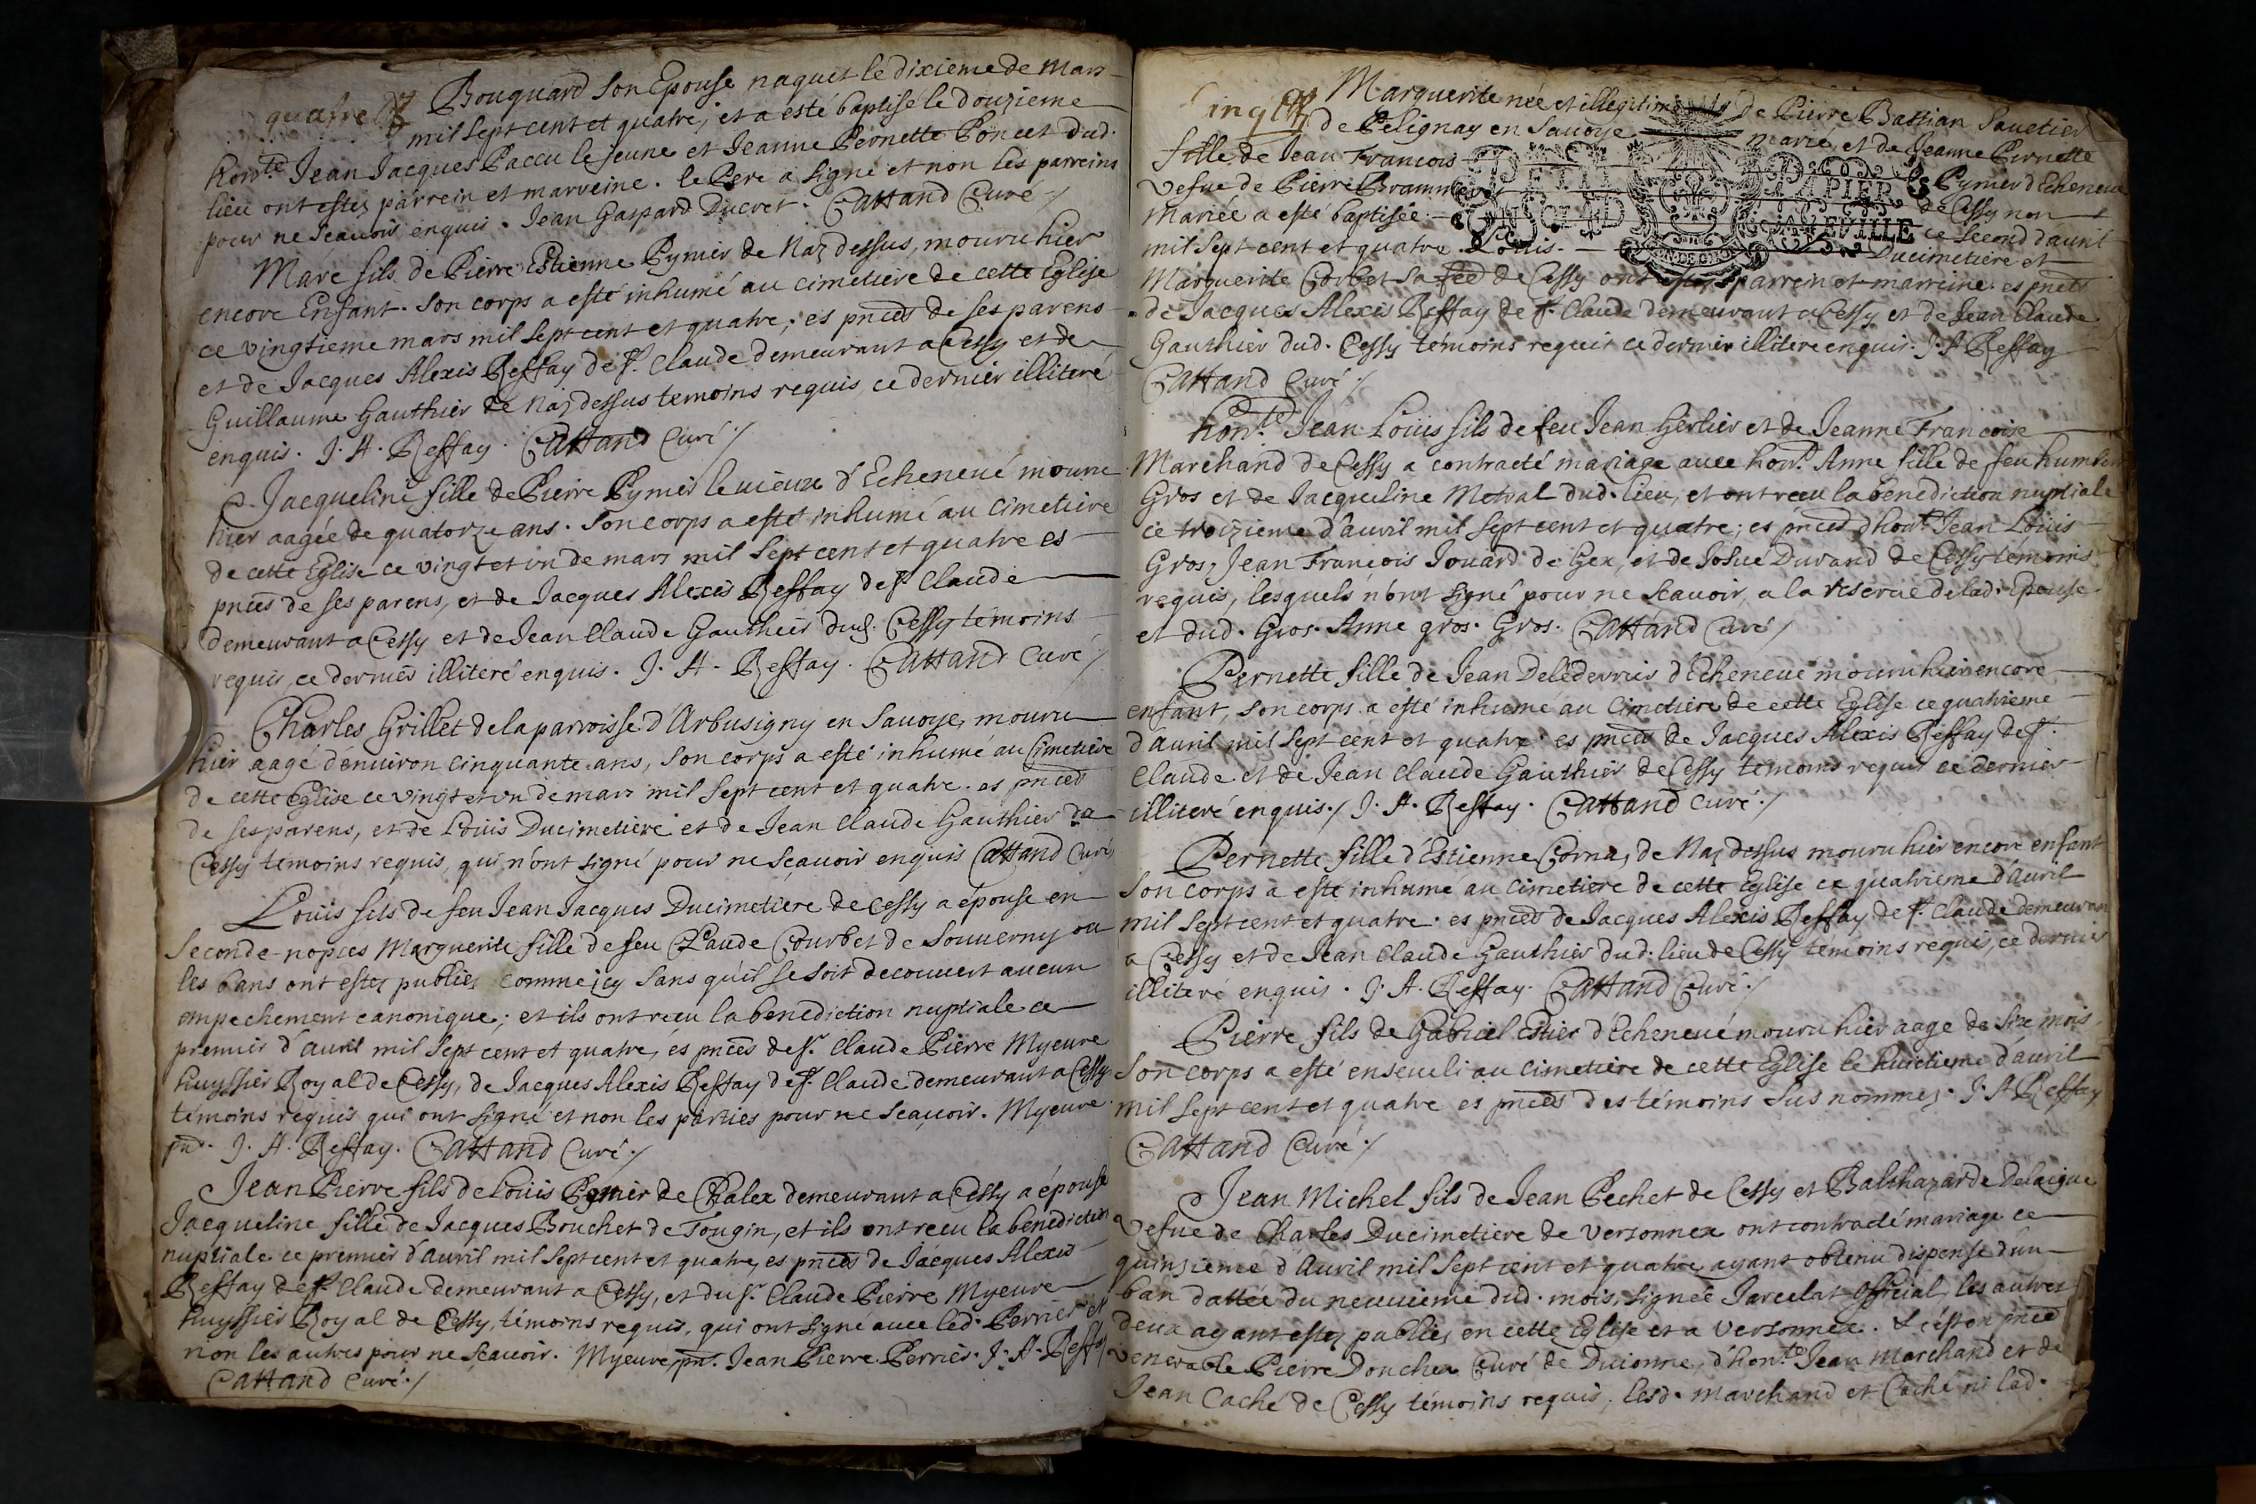 Bouquard son Epouse naquit le dixieme de Mars
quatre
mil sept cent et quatre, et a esté baptisé le douzieme
hon.te Jean Jacques Paccu le jeune et Jeanne Pernette Poncet dud.
lieu ont estez parrein et marreine. le Pere a signé et non les parreins
pour ne scauoir enquis. Jean Gaspard Ducret. Cattand Curé ./
Marc fils de Pierre Estienne Pymier de Naz dessus, mouru hier
encore Enfant. son corps a esté inhumé au cimetiere de cette Eglise
ce vingtieme mars mil sept cent et quatre; es pnces de ses parens
et de Jacques Alexis Reffay de st. Claude demeurant a Cessy et de
Guillaume Gauthier de Naz dessus temoins requis, ce dernier illiteré
enquis. J. A. Reffay. Cattand Curé ./
Jacqueline fille de Pierre Pymier le uieux d'Echeneué mouru
hier aagée de quatorze ans. son corps a esté inhumé au Cimetiere
de cette Eglise ce vingt et un de mars mil sept cent et quatre es
pnces de ses parens, et de Jacques Alexis Reffay de st Claude
demeurant a Cessy et de Jean Claude Gauthier dud. Cessy témoins
requis, ce dernier illiteré enquis. J. A. Reffay. Cattand Curé ./
Charles Grillet de la parroisse d'Arbusigny en Sauoye, mouru
hier aagé d'enuiron cinquante ans, son corps a esté inhumé au Cimetiere
de cette Eglise ce vingt et un de mars mil sept cent et quatre. es pnces
de ses parens, et de Louis Ducimetiere et de Jean Claude Gauthier de
Cessy témoins requis, qui n'ont signé pour ne sçauoir enquis Cattand Curé
Louis fils de feu Jean Jacques Ducimetiere de Cessy a épousé en
seconde nopces Marguerite fille de feu Claude Courbet de Sauuerny ou
les bans ont estez publiés comme icy sans qu'il se soit decouuert aucun
empechement canonique; et ils ont receu la benediction nuptiale ce
premier d'auril mil sept cent et quatre, és pnces de sr. Claude Pierre Myeure
huyssier Royal de Cessy, de Jacques Alexis Reffay de st. Claude demeurant a Cessy
témoins requis qui ont signé et non les parties pour ne sçauoir. Myeure
pnt. J. A. Reffay. Cattand Curé ./
Jean Pierre fils de Louis Perrier de Chalex demeurant a Cessy a épousé
Jacqueline fille de Jacques Bouchet de Tougin, et ils ont receu la benediction
nuptiale ce premier d'auril mil sept cent et quatre, es pnces de Jacques Alexis
Reffay de st. Claude demeurant a Cessy, et du sr. Claude Pierre Myeure
huyssier Royal de Cessy, témoins requis, qui ont signé auec led. Perrier et
non les autres pour ne sçauoir. Myeure, pnt. Jean Pierre Perrier. J. A. Reffay
Cattand Curé ./
Cinq
Marguerite née et illegitime de Pierre Bastian Sauetier
de Pelignay en Sauoye marié, et de Jeanne Pernette
fille de Jean Francois Pymier d'Echeneué
Vefue de Pierre de Cessy non
mariée a esté baptisée ce second d'auril
mil sept cent et quatre. Louis Ducimetiere et
PETIT PAPIER
Marguerite Corbet sa fee de Cessy ont estez parrein et marreine. es pnces
de Jacques Alexis Reffay de st. Claude demeurant a Cessy et de Jean Claude
Gauthier dud. Cessy temoins requis ce dernier illiteré enquis. J. A Reffay
Cattand Curé ./
hon.te Jean Louis fils de feu Jean Gerlier et de Jeanne Francoise
Marchand de Cessy a contracté mariage auec hon.te Anne fille de feu humbert
Gros et de Jacqueline Metral dud. lieu, et ont receu la benediction nuptiale
ce troizieme d'auril mil sept cent et quatre; es pnces d'hon.te Jean Louis
Gros, Jean François Jouard de Gex, et de Josué Durand de Cessy témoins
requis, lesquels n'ont signé pour ne scauoir, a la reserue de lad. Epouse
et dud. Gros. Anne gros. Gros. Cattand Curé ./
Pernette fille de Jean Delederrier d'Echeneué mouru hier encore
enfant, son corps a esté inhumé au Cimetiere de cette Eglise ce quatrieme
d'auril mil sept cent et quatre es pnces de Jacques Alexis Reffay de st.
Claude et de Jean Claude Gauthier de Cessy temoins requis ce dernier
illiteré enquis./ J. A. Reffay. Cattand Curé ./
Pernette fille d'Estienne Cornaz de Naz dessus mouru hier encore enfant
son corps a esté inhumé au cimetiere de cette Eglise ce quatrieme d'auril
mil sept cent et quatre. es pnces de Jacques Alexis Reffay de st. Claude demeurant
a Cessy et de Jean Claude Gauthier dud. lieu de Cessy temoins requis, ce dernier
illiteré enquis. J. A. Reffay. Cattand Curé ./
Pierre fils de Gabriel Estier d'Echeneué mouru hier aagé de six mois,
son corps a esté enseueli au cimetiere de cette Eglise le huictieme d'auril
mil sept cent et quatre es pnces des témoins sus nommez. J. A Reffay
Cattand Curé ./
Jean Michel fils de Jean Pechet de Cessy et Balthazarde Delaigue
Vefue de Charles Ducimetiere de Versonnex ont contracté mariage ce
quinzieme d'Auril mil sept cent et quatre, ayant obtenu dispense d'un
ban dattée du neuuieme dud. mois, signée Jarcelat official, les autres
deux ayant estez publiez en cette Eglise et a Versonnex. L'est en pnce
Venerable Pierre Donchex Curé de Diuonne, d'hon.te Jean Marchand et de
Jean Caché de Cessy témoins requis, lesd. Marchand et Caché ni lad.